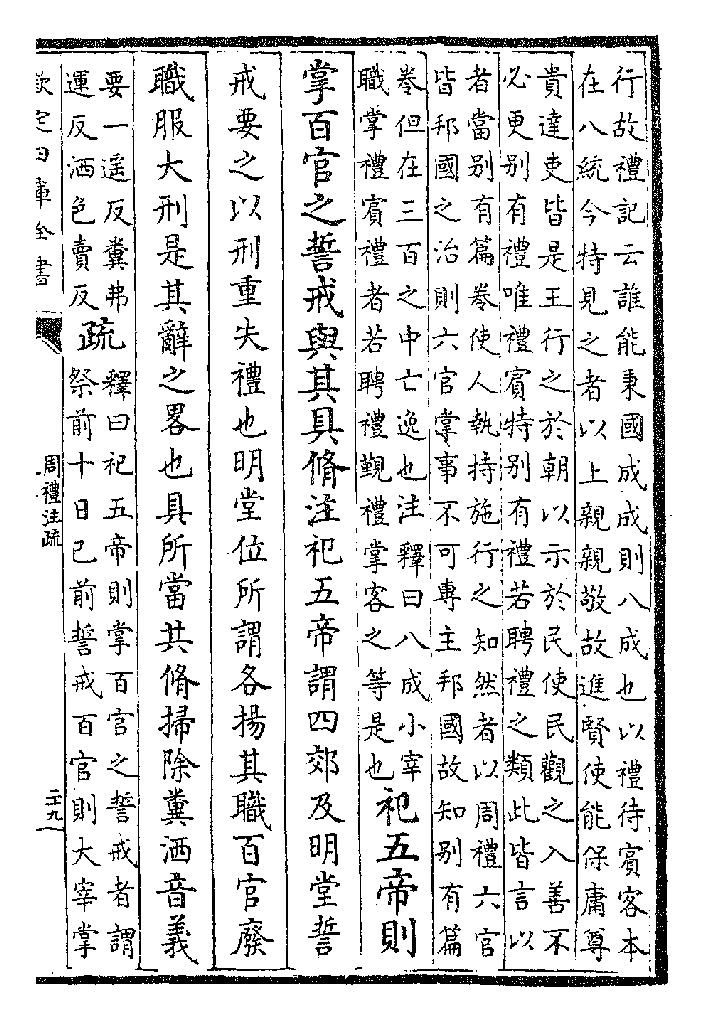 行故禮記云誰能秉國成成則八成也以禮待賓客本
在八統今特見之者以上親親敬故進賢使能保庸尊
貴達吏皆是王行之於朝以示於民使民觀之入善不
必更别有禮唯禮賓特别有禮若聘禮之類此皆言以
者當别有篇卷使人執持施行之知然者以周禮六官
皆邦國之治則六官掌事不可專主邦國故知别有篇
卷但在三百之中亡逸也注釋曰八成小宰
職掌禮賓禮者若聘禮覲禮掌客之等是也祀五帝則
掌百官之誓戒與其具脩注祀五帝謂四郊及明堂誓
戒要之以刑重失禮也明堂位所謂各揚其職百官廢
職服大刑是其辭之畧也具所當共脩掃除糞洒音義
要一遥反糞弗
運反洒色賣反疏
釋曰祀五帝則掌百官之誓戒者謂
祭前十日已前誓戒百官則大宰掌
欽定四庫全書
周禮注疏
二十九